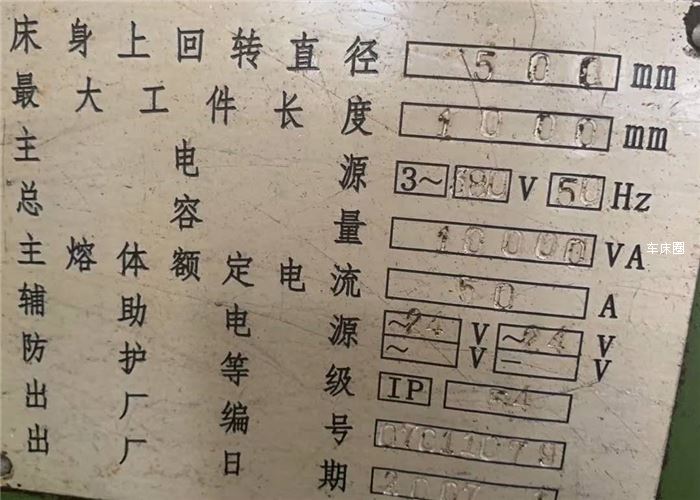 床身上回转直径 500 mm
最大工件长度 1000 mm
主电源 3~ 380 V 50 Hz
总容量 10000 VA
主熔体额定电流 50 A
辅助电源 ~24 V ~24 V
~ V - V
防护等级 IP 54
出厂编号 07011079
出厂日期 2007
车床圈